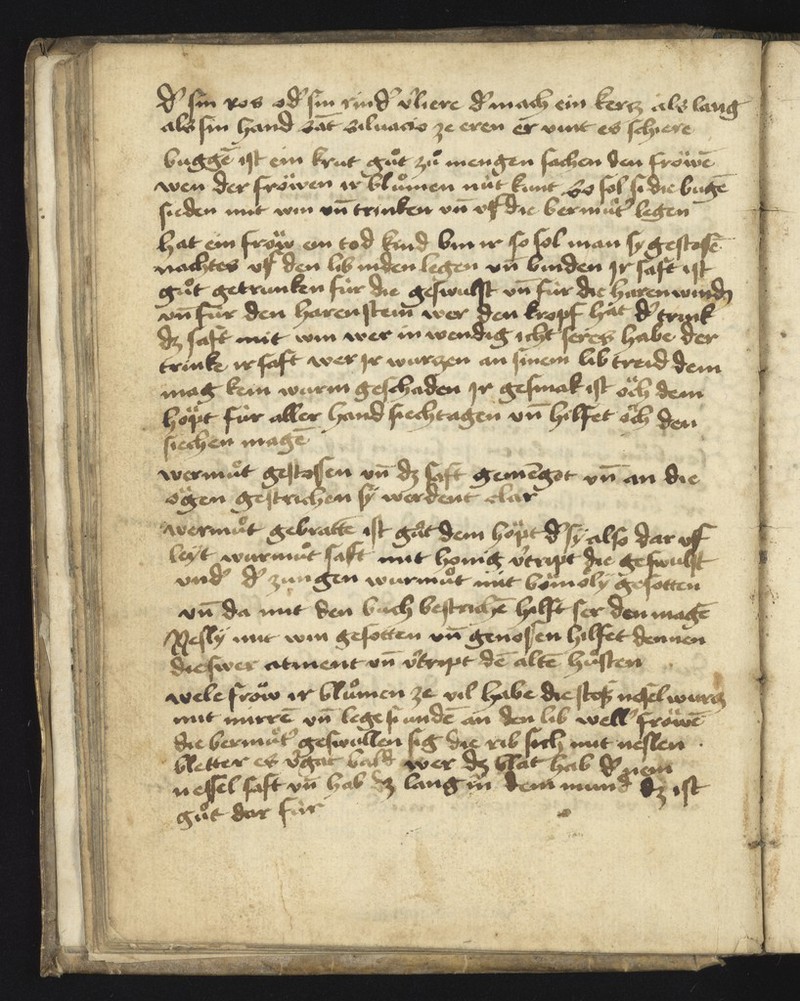 dˀ sin ros odˀ sin rindˀ vˀliere dˀ mach ein kercz als lang
als sin hand sāt siluacio ze eren er vint es schiere
buggē ist ein krut guͦt zuͦ mengen sachen den froͤwē
wen der froͤwen ir bluͦmen nuͤt kunt so sol si die bugē
sieden mit win vn̄ trinken vn̄ vf die bermuͦtˀ legen
hat ein froͤw ein tod kind bin ir so sol man sy gestosē
nachtes vf den lib inden legen vn̄ binden Ir saft ist
guͦt getrunken fuͤr die geswulst vn̄ fuͤr die harenwindˀ
vn̄ fuͤr den harenstein wer den kropf hat dˀ trink
dz saft mit win wer inwendig icht seres habe der
trinke ir saft wer Ir wurzen an sinem lib treid dem
mag kein wurm geschaden Ir gesmak ist oͤch dem
hoͤpt fuͤr aller hand siechtagen vn̄ hilfet oͤch den
siechen magē
wermuͦt gestossen vn̄ dz saft gemēgot vn̄ an die
oͤgen gestrichen sy werdent clar
wermuͦt gebrattē ist guͦt dem hoͤpt dˀ sy also dar vf
leyt wurmuͦt saft mit honig vˀtript die geswulst
vndˀ dˀ zungen wurmuͦt mit boͤmoly gesotten
vn̄ da mit den buch bestrichē hilft ser den magē
Nesly mit win gesotten vn̄ genossen hilfet dennen
die swer atment vn̄ vˀtript dē altē huͦsten
wele froͤw ir bluͦmen ze vil habe die stos neselwurcz
mit mirrē vn̄ lege si undē an den lib wellˀ froͤwē
die bermuͦtˀ geswullen sig die rib sich mit neslen
bletter es vˀgat bald wer dz blat hab dˀ niem
nessel saft vn̄ hab dz lang in dem mund dz ist
guͦt dar fuͤr